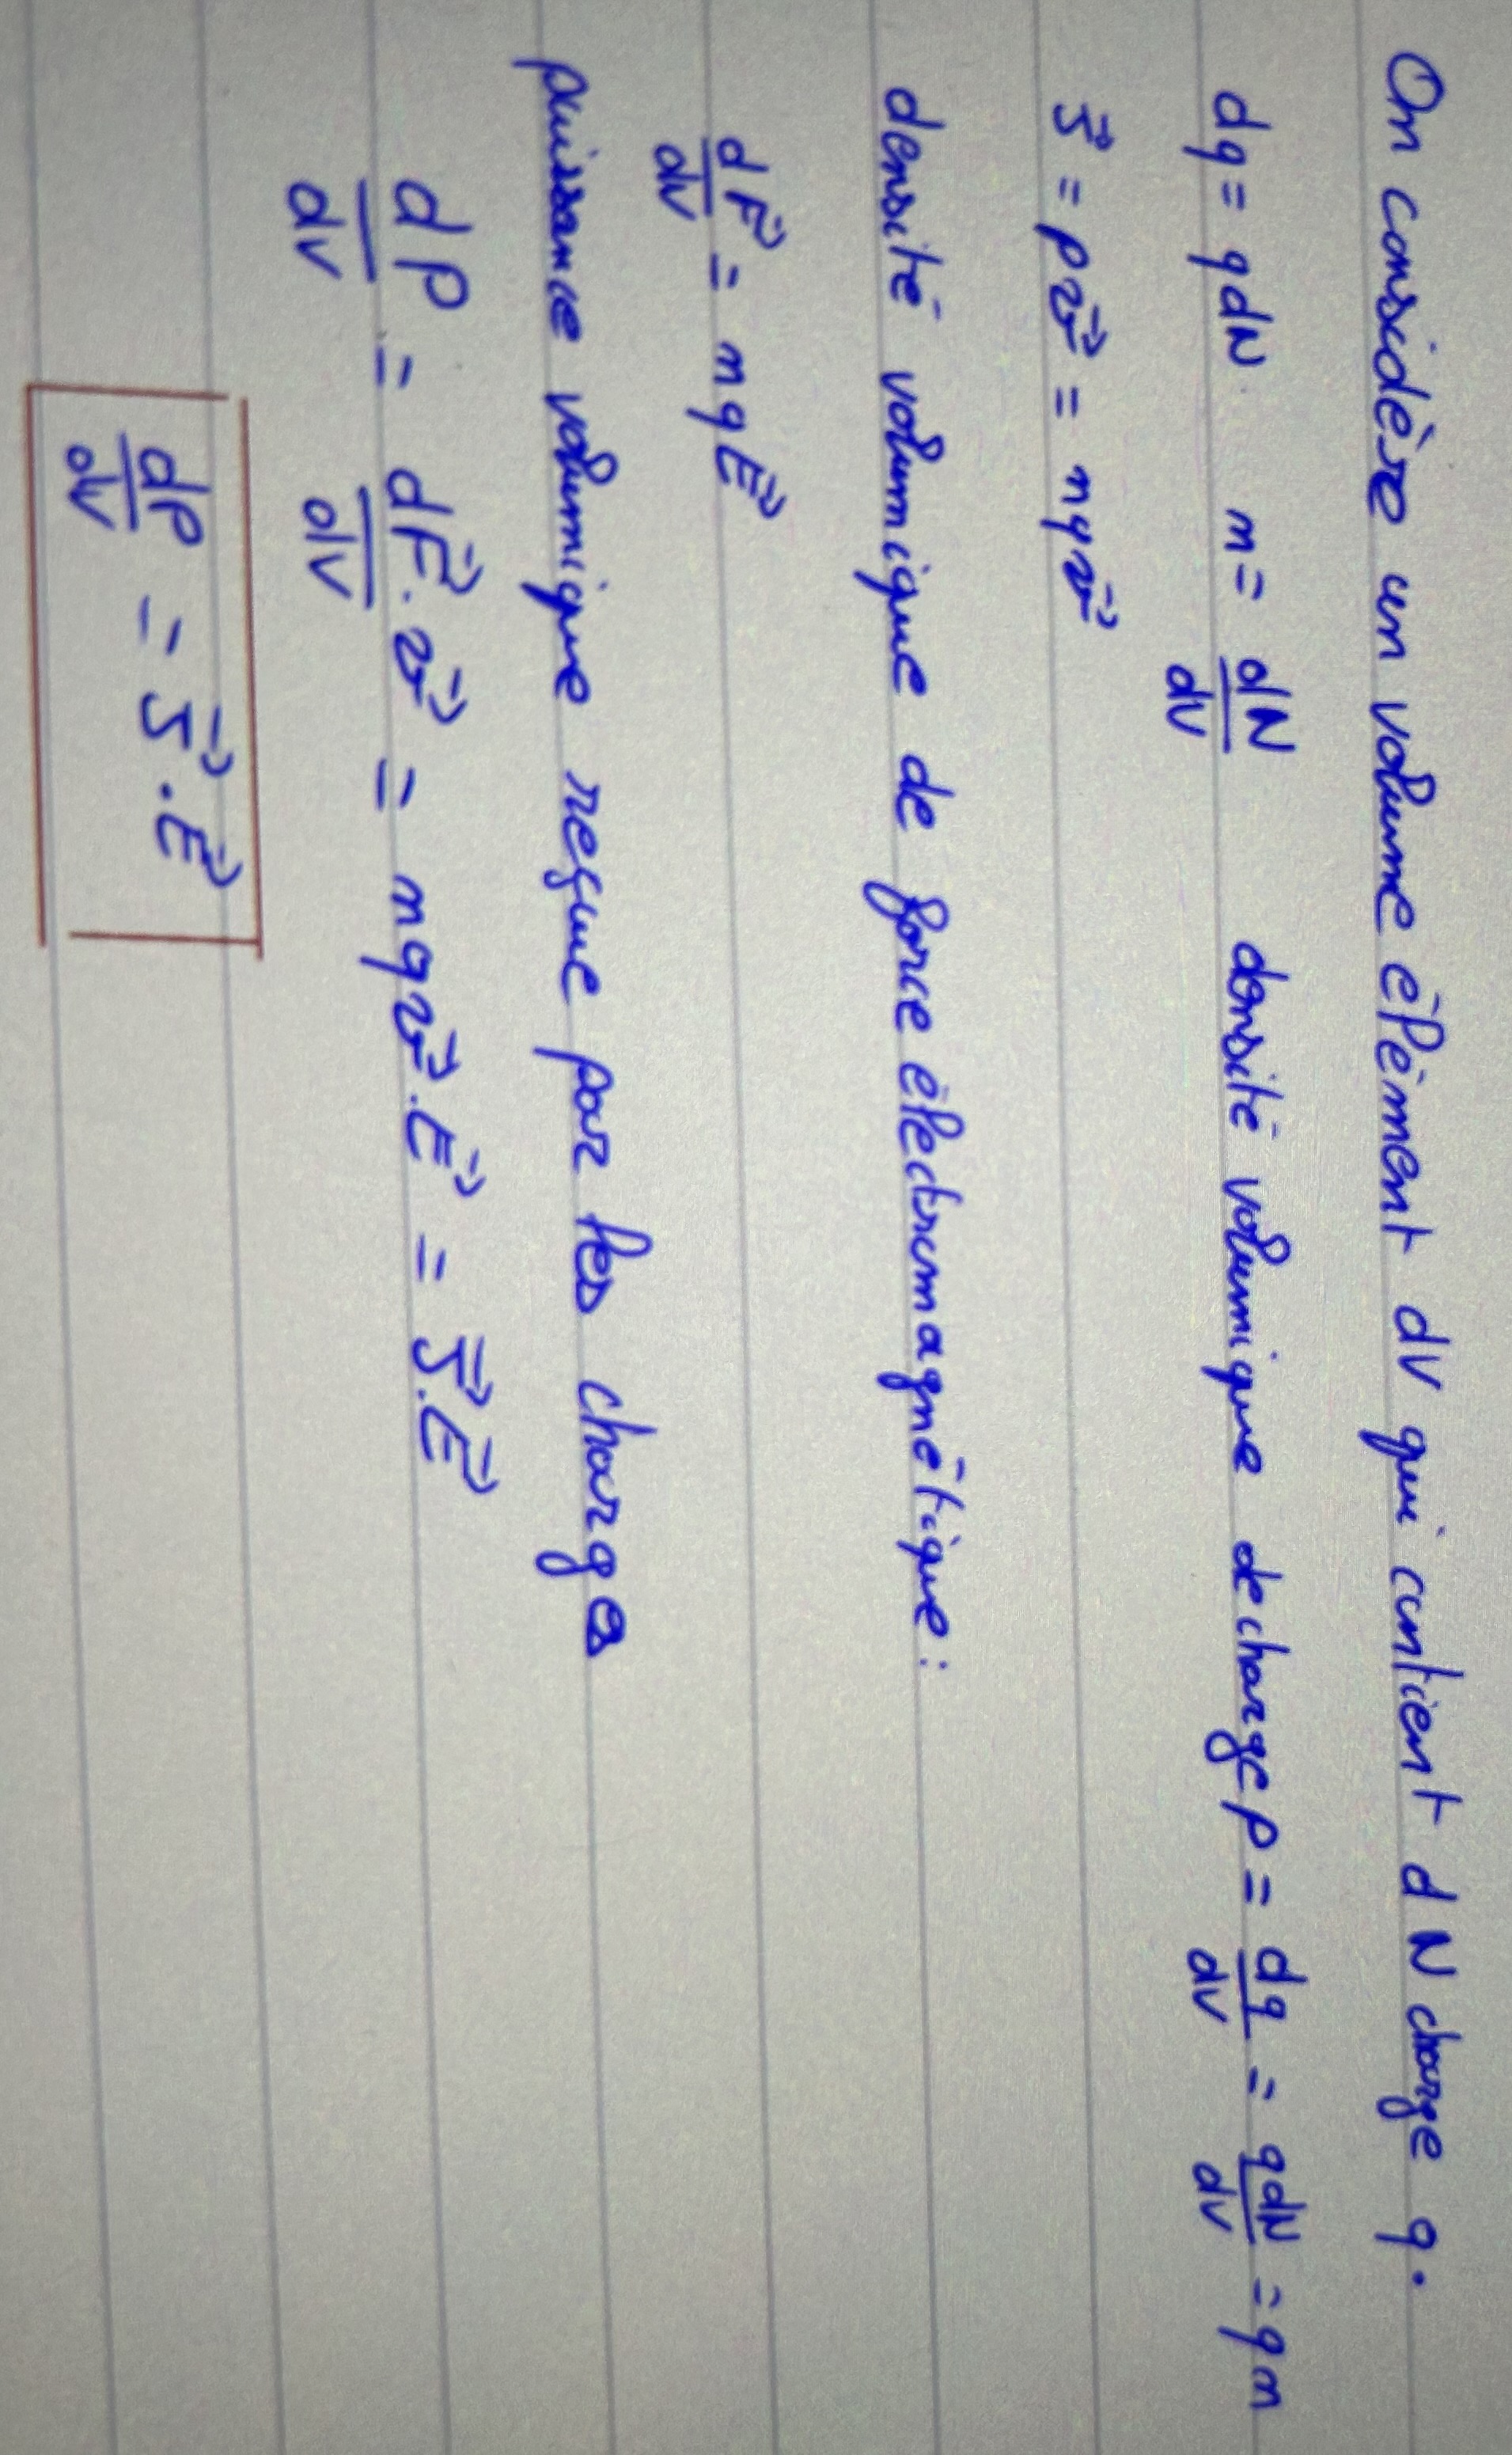 On considère un volume élément dV qui contient dN charge q.
dq = q dN n = dN/dV densité volumique de charge ρ = dq/dV = q dN/dV = q n
J⃗ = ρv⃗ = nqv⃗
densité volumique de force électromagnétique :
dF⃗/dV = nqE⃗
puissance volumique reçue par les charges
dP/dV = dF⃗/dV . v⃗ = nqv⃗ . E⃗ = J⃗ . E⃗
dP/dV = J⃗ . E⃗